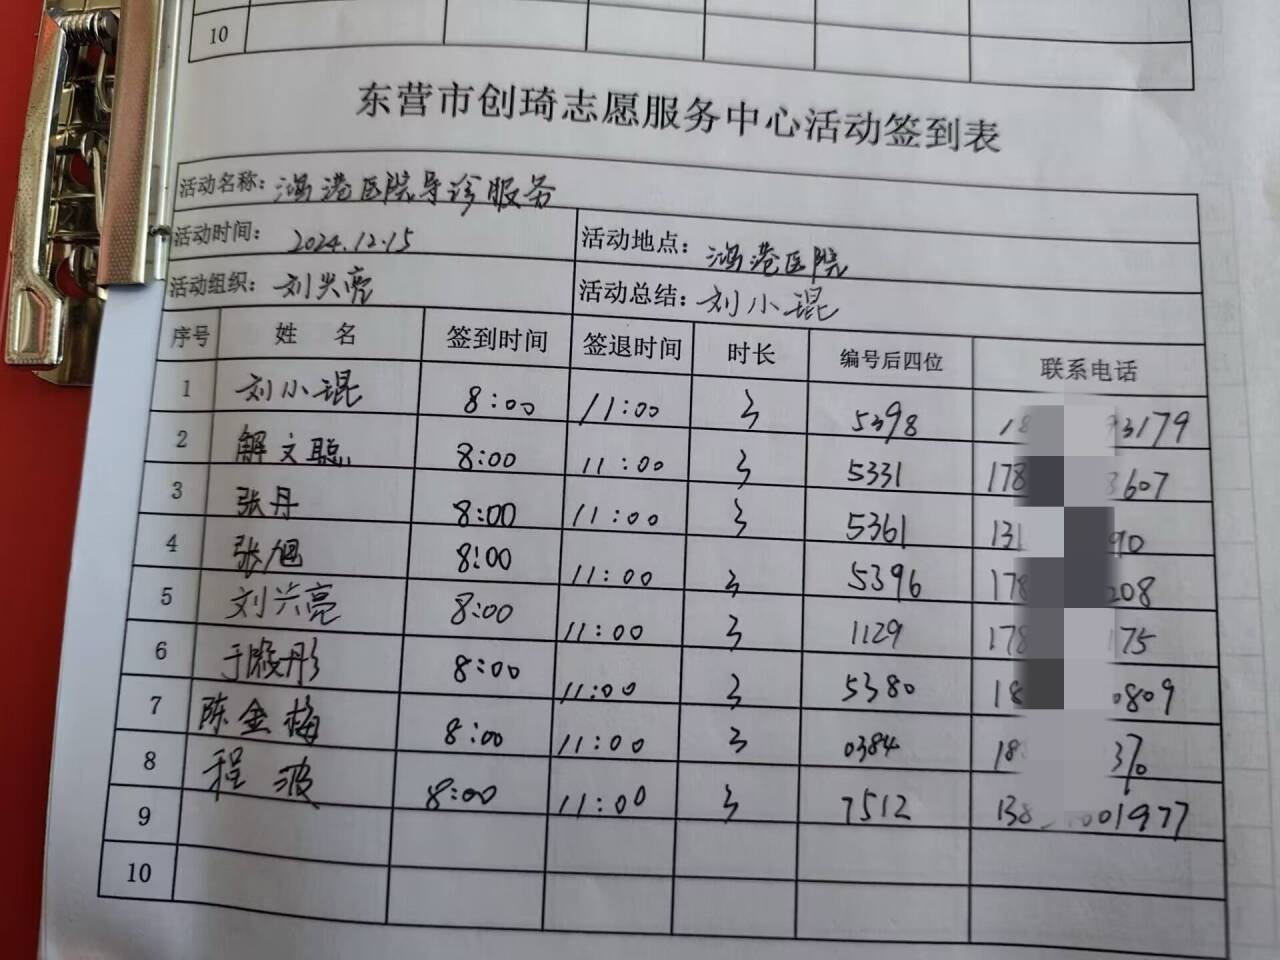 10
东营市创琦志愿服务中心活动签到表
活动名称: 鸿港医院导诊服务
活动时间: 2024.12.15 活动地点: 鸿港医院
活动组织: 刘兴亮 活动总结: 刘小琨
序号 姓 名 签到时间 签退时间 时长 编号后四位 联系电话
1 刘小琨 8:00 11:00 3 5398 18 93179
2 解文聪 8:00 11:00 3 5331 178 3607
3 张丹 8:00 11:00 3 5361 131 90
4 张旭 8:00 11:00 3 5396 178 208
5 刘兴亮 8:00 11:00 3 1129 178 175
6 于 彤 8:00 11:00 3 5380 18 0809
7 陈金梅 8:00 11:00 3 0384 18 37
8 程波 8:00 11:00 3 7512 138 001977
9
10